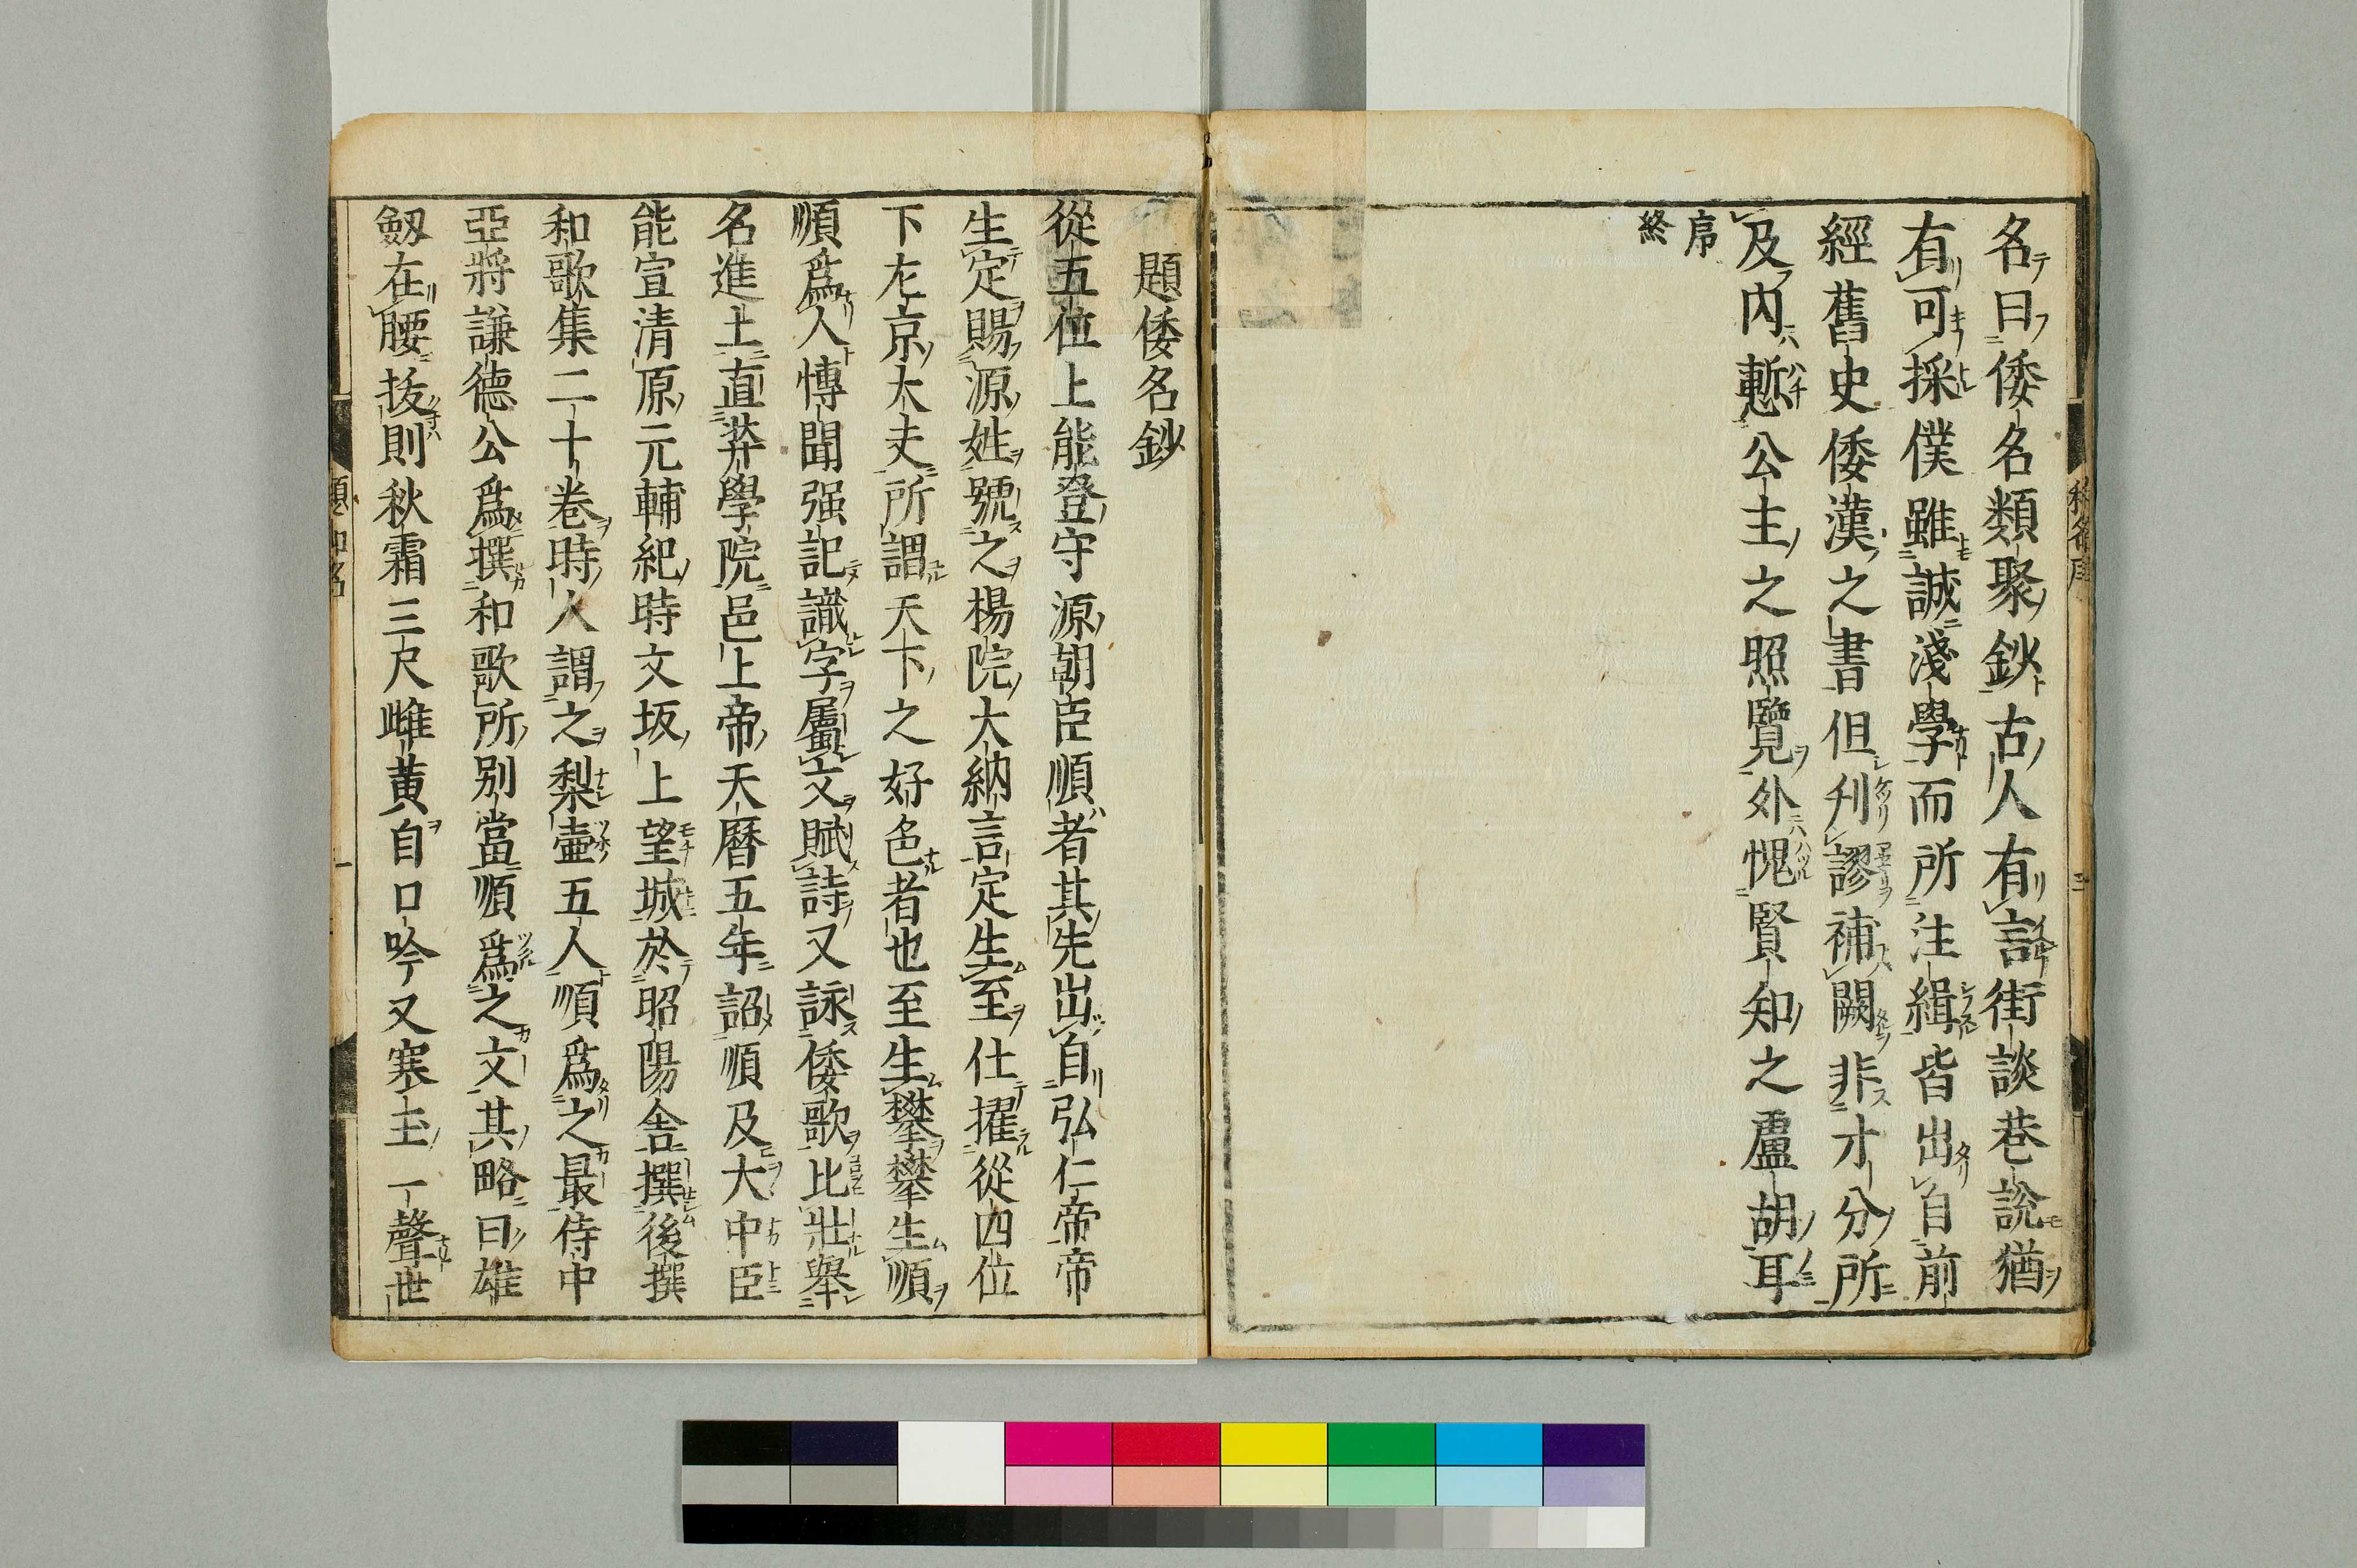 名曰倭名類聚鈔古人有言街談巷說猶
有可採僕雖誠淺學而所注緝皆出自前
經舊史倭漢之書但刋謬補闕非才分所
及內慙公主之照覽外愧賢知之盧胡耳
序
終
題倭名鈔
從五位上能登守源朝臣順者其先出自弘仁帝帝
生定賜源姓號之楊院大納言定生至仕擢從四位
下左京大夫所謂天下之好色者也至生攀攀生順
順爲人博聞强記識字屬文賦詩又詠倭歌比壯擧
名進士直弉學院邑上帝天曆五年詔順及大中臣
能宣清原元輔紀時文坂上望城於昭陽舍撰後撰
和歌集二十卷時人謂之梨壷五人順爲之最侍中
亞將謙德公爲撰和歌所別當順爲之文其略曰雄
劔在腰拔則秋霜三尺雌黃自口吟又寒玉一聲世